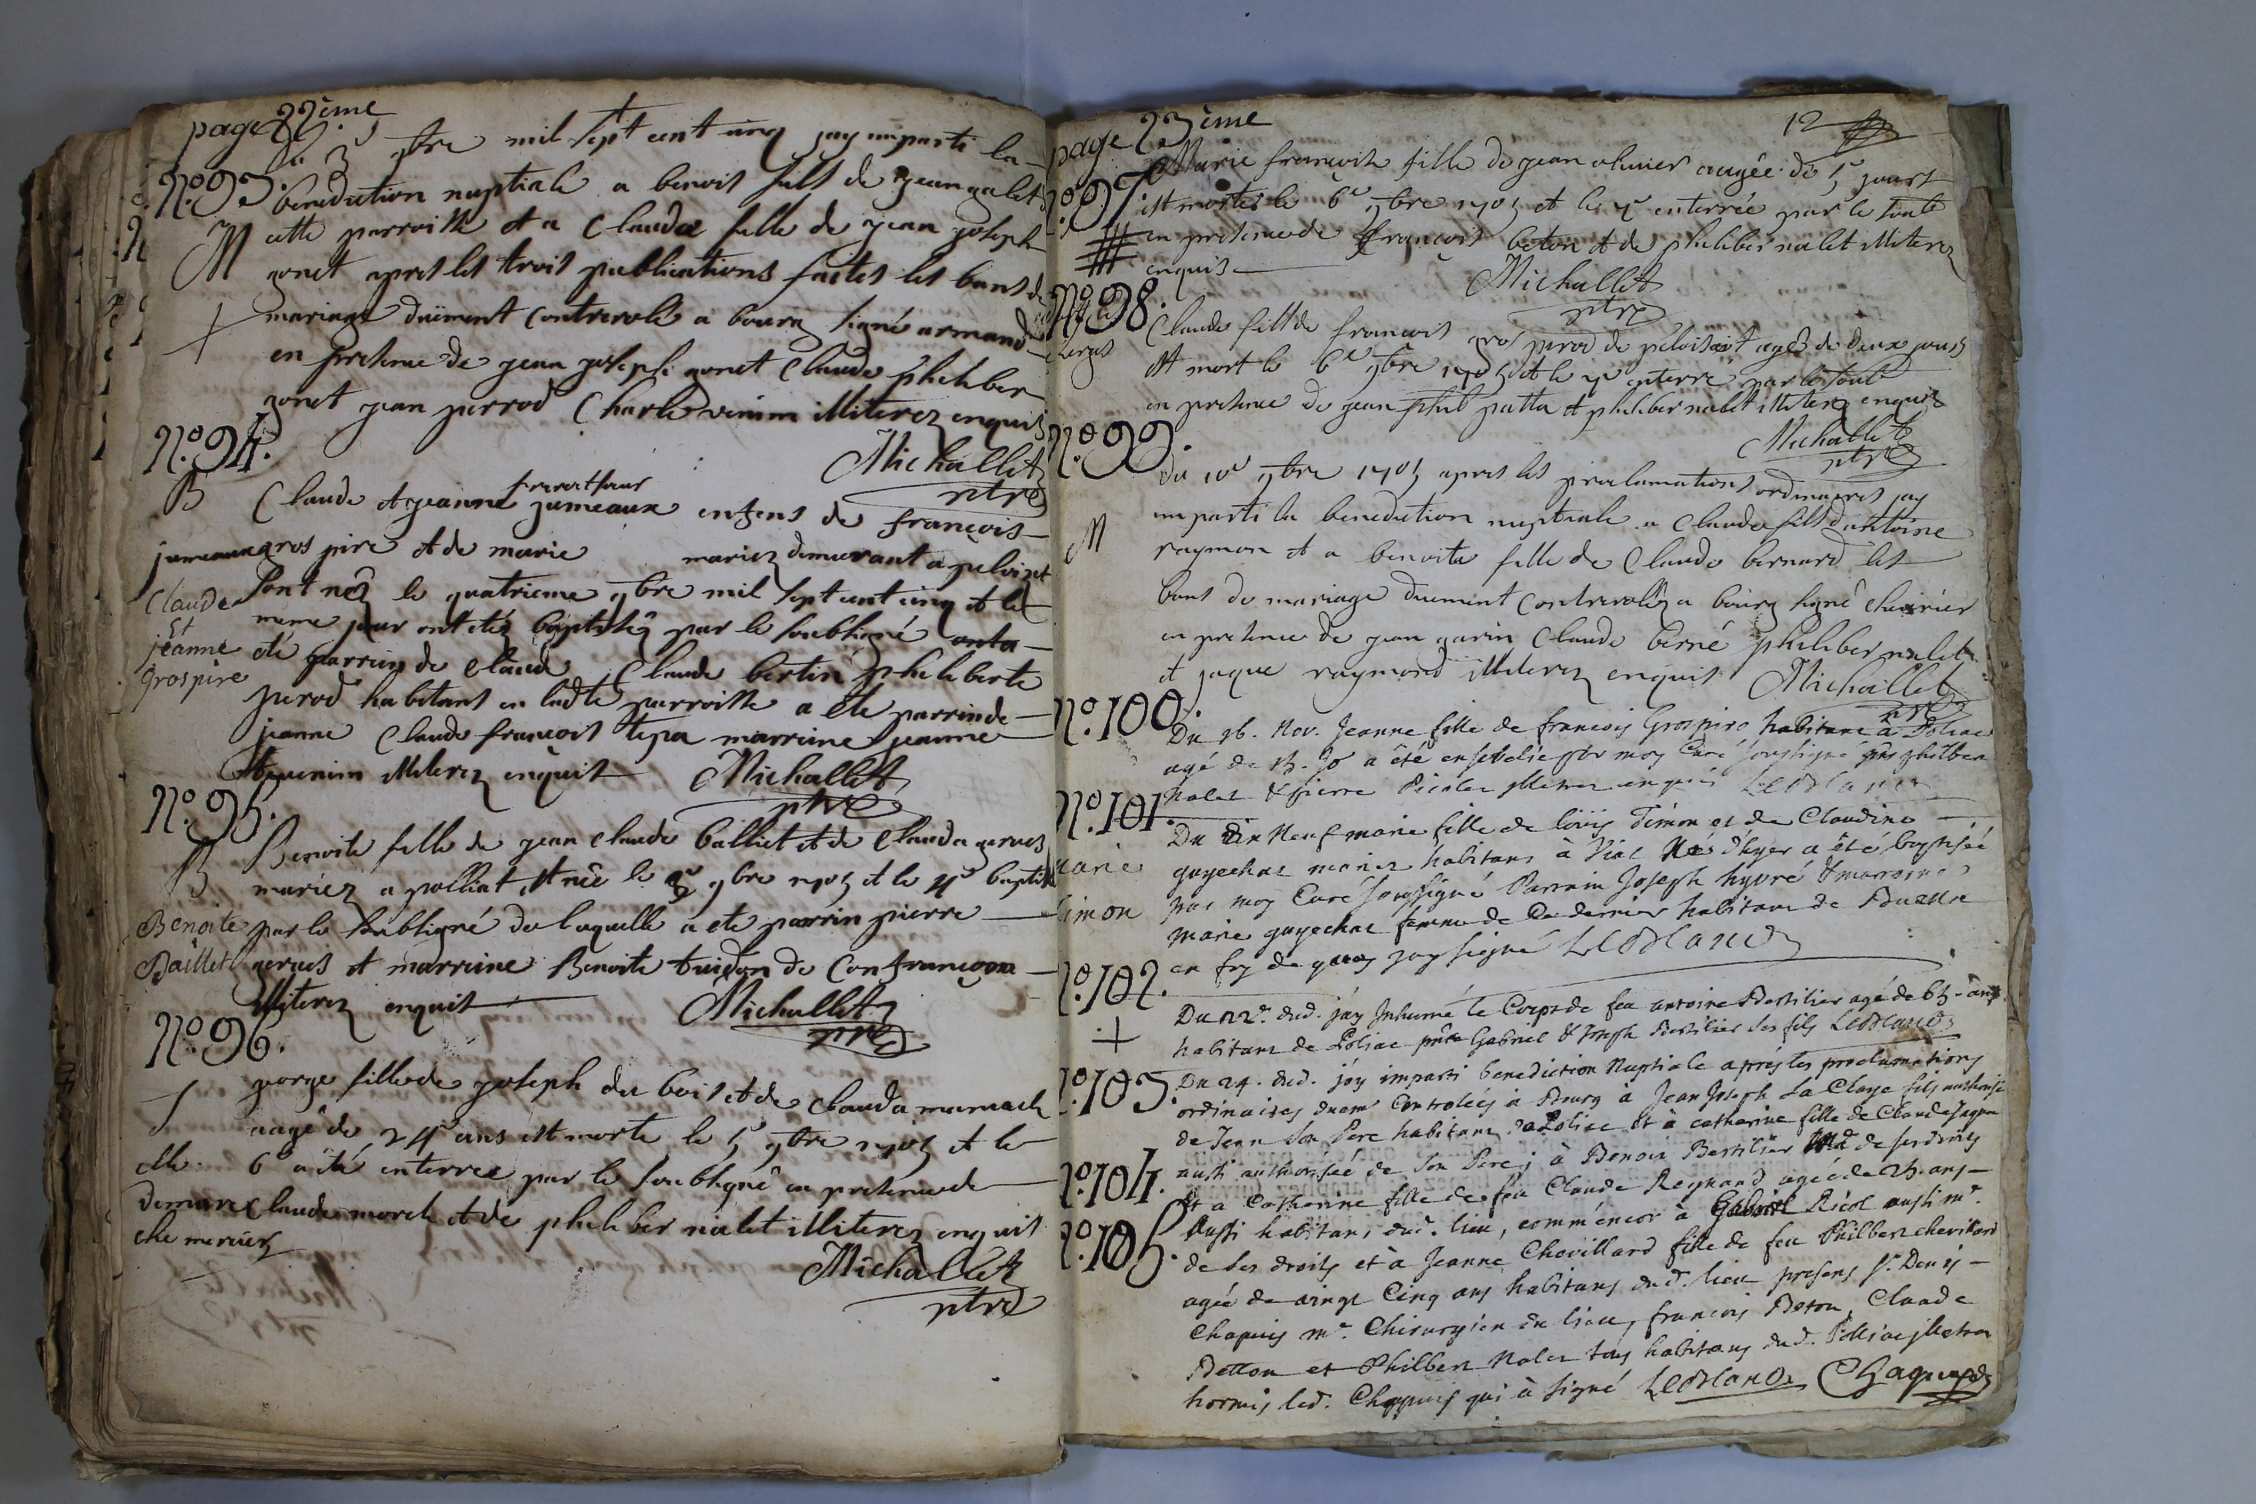 page 22ème
le 3 9bre mil sept cent cinq jay imparti la
N.º 93.
benediction nuptiale a benoit fils de jean nalet
M cette parroisse et a Clauda fille de jean joseph
gonet apres les trois publications faites les bans de
mariage duëment Controrolé a bourg signé armand
en presence de jean joseph gonet Claude phileber
gonet jean perrod Charle venim illiterez enquis
N.º 94.
Michallet
ptre
B Claude et jeanne frere et soeur jumeaux enfens de françois
jumeaux gros pire et de marie mariez demeurant a peloizet
Claude sont néz le quatrieme 9bre mil sept cent cinq et le
Et meme jour ont etéz baptiséz par le soubsigné
jeanne eté parrin de claude Claude bertin phileberte
Grospire perod habitant en ladte parroisse a ete parrin de
jeanne Claude françois tepa marreine jeanne
illiterez enquis Michallet
ptre
N.º 95.
B Benoite fille de jean claude balliet et de Clauda gerues
mariez a polliat est née le 3e 9bre 1705 et le 4e baptisé
Benoite par le soubsigné de laquelle a ete parrin pierre
Baillet gerues et marreine Benoite tuidon de Confrançon
illiterez enquis Michallet
ptre
N.º 96.
gorge fille de joseph du bois et de Clauda
aagé de 24 ans est morte le 5 9bre 1705 et le
elle. 6e a été interree par le soubsigné en presence de
demare Claude morel et de phileber nalet illiterez enquis
che mercier
Michallet
ptre
page 23ème
12
Marie francoise fille de jean olivier aagée de 5 jours
N.º 97.
est mortes le 6e 9bre 1705 et le 7e enterrée par le soubs
en presence de françois beton et de phileber nalet illiterez
enquis
Michallet
ptre
N.º 98.
Claude fils de francois gros pirod de peloisat agéz de deux jours
est mort le 6e 9bre 1705 et le 7e enterré par le soubs
en presence de jean phil patta et phileber nalet illiterez enquis
Michallet
ptre
N.º 99.
Du 10e 9bre 1705 apres les proclamations ordinaires jay
imparti la benediction nuptiale a Claude fils d'antoine
M raymon et a benoite fille de Claude bernard les
bans de mariage duement Controrolés a bourg signé
en presence de jean garin Claude berné phileber nalet
et jaque raymond illiterez enquis Michallet
ptre
N.º 100.
Du 16. Nov. Jeanne fille de francois Grospire habitant à Poliac
agé de 15. Jo a été ensevelie par moy Curé soussigné pnt philber
Nalet & pierre Picolet illetrez enquis LeBlanc
N.º 101.
Du dix Neuf marie fille de loüis Simon et de Claudine
Marie guyechat mariez habitans à Viac Née d'hyer a êté baptisée
Simon par moy Curé soussigné Parrain Joseph hyvré & marraine
marie guyechat femme de Ce dernier habitans de Buelle
en foy de quoy jay signé LeBlanc
N.º 102.
Du 22e. dud. jay Inhumé le Corps de feu antoine Bestilier agé de 65. ans
habitant de Poliac pnts Gabriel & Joseph Bestilier ses fils LeBlanc
N.º 103.
Du 24. dud. jäy imparti benediction Nuptiale aprés les proclamations
ordinaires duemt Controlées à Bourg à Jean Joseph La Claye fils authorisé
de Jean son Pere habitant à Poliac et à catherine fille de Claude
N.º 104.
aussi authorisée de son Pere; à Benoit Bestilier Md. de ses droits
et a Catherine fille de feu Claude Reynard agée de 25. ans
N.º 105.
Aussi habitans dud. lieu, comm'encor à Gabriel Ricol aussi me.
de ses droits et à Jeanne Chevillard fille de feu Philbert chevillard
agée de vingt Cinq ans habitans dud. lieu presens sr. Denis
Chapuis me. Chirurgien du lieu, françois Beton, Claude
Betton et Philbert Nalet tous habitans dud. Polliac illetrez
hormis led. Chappuis qui à signé LeBlanc Chapuis